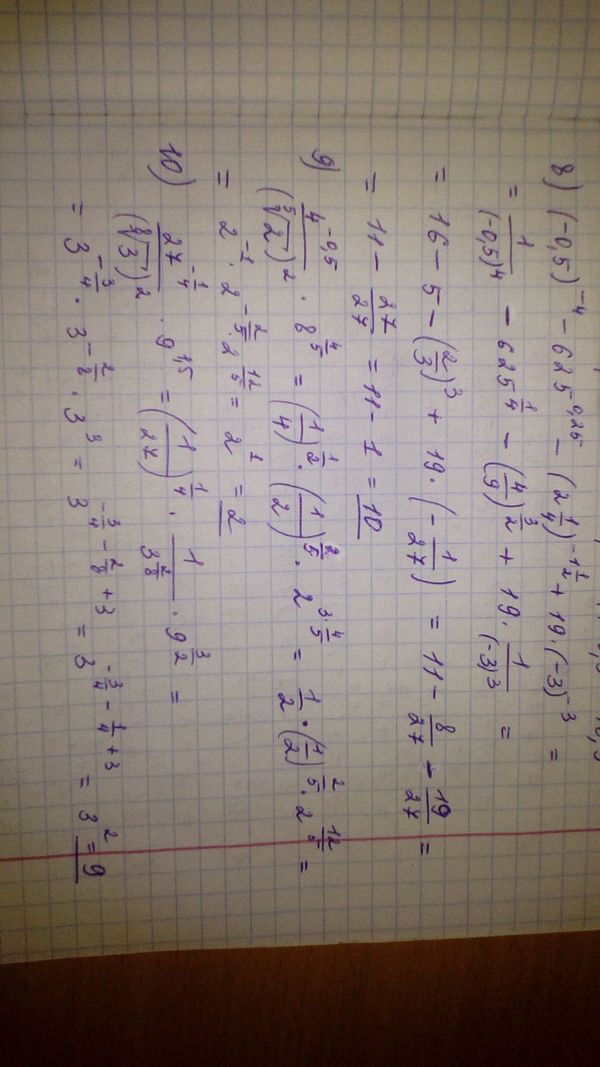 8) (-0,5)⁻⁴ - 625^{0,25} - (2\frac{1}{4})^{-1\frac{1}{2}} + 19·(-3)⁻³ =
= \frac{1}{(-0,5)⁴} - 625^{\frac{1}{4}} - (\frac{4}{9})^{\frac{3}{2}} + 19·\frac{1}{(-3)³} =
= 16 - 5 - (\frac{2}{3})³ + 19·(-\frac{1}{27}) = 11 - \frac{8}{27} - \frac{19}{27} =
= 11 - \frac{27}{27} = 11 - 1 = 10
9) \frac{4^{-0,5}}{(\sqrt[5]{2})²} · 8^{\frac{4}{5}} = (\frac{1}{4})^{\frac{1}{2}} · (\frac{1}{2})^{\frac{2}{5}} · 2^{3·\frac{4}{5}} = \frac{1}{2} · (\frac{1}{2})^{\frac{2}{5}} · 2^{\frac{12}{5}} =
= 2⁻¹ · 2^{-\frac{2}{5}} · 2^{\frac{12}{5}} = 2¹ = 2
10) \frac{27^{-\frac{1}{4}}}{(\sqrt[8]{3})²} · 9^{1,5} = (\frac{1}{27})^{\frac{1}{4}} · \frac{1}{3^{\frac{2}{8}}} · 9^{\frac{3}{2}} =
= 3^{-\frac{3}{4}} · 3^{-\frac{2}{8}} · 3³ = 3^{-\frac{3}{4} - \frac{2}{8} + 3} = 3^{-\frac{3}{4} - \frac{1}{4} + 3} = 3² = 9